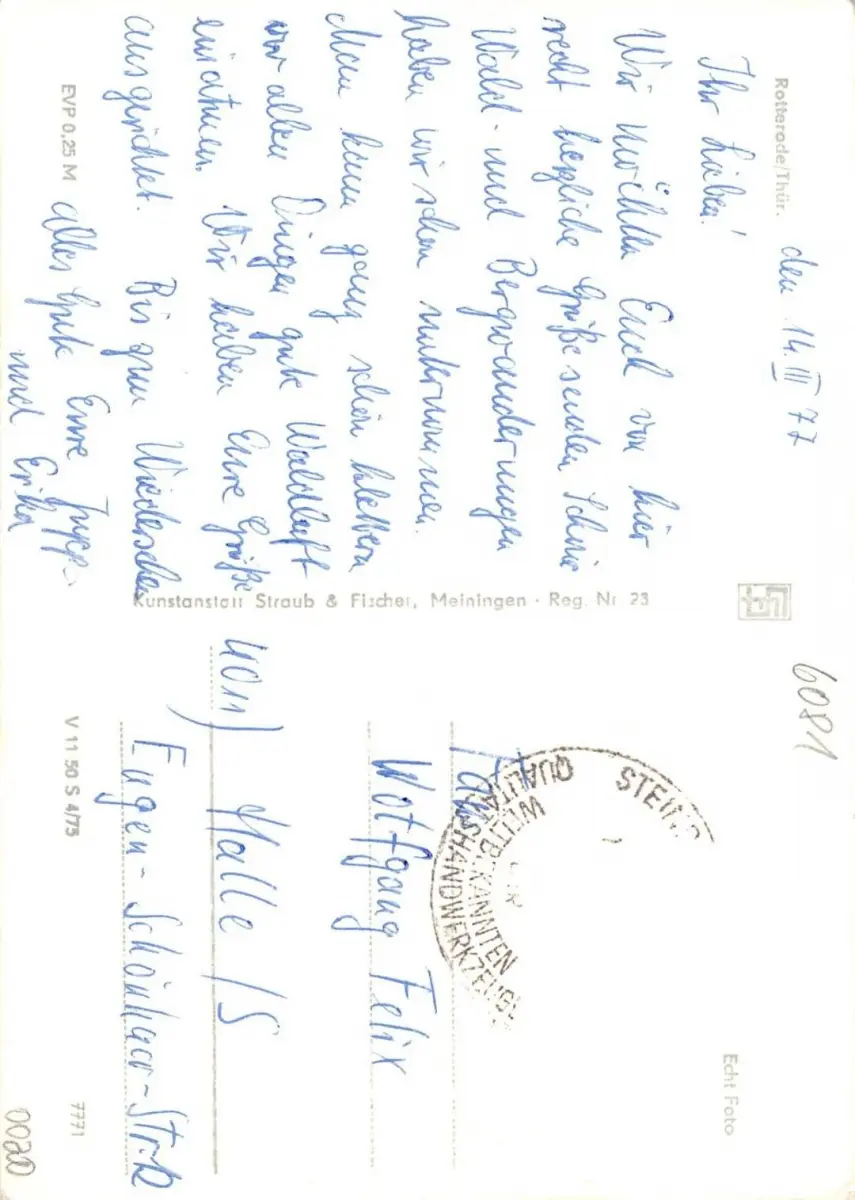 Rotterode/Thür.
den 14. III 77
Ihr Lieben!
Wir möchten Euch von hier
recht herzliche Grüße senden Schöne
Wald- und Bergwanderungen
haben wir schon unternommen.
Man kann ganz schön klettern
vor allen Dingen gute Waldluft
einatmen. Wir haben Eure Grüße
ausgerichtet. Bis zum Wiedersehen
alles Gute Eure
und Erika
EVP 0,25 M
Kunstanstalt Straub & Fischer, Meiningen · Reg. Nr. 23
6081
STEIN
WELTBEKANNTEN
QUALITÄTSHANDWERKZEUGE
Echt Foto
Fam
Wolfgang Felix
4011) Halle /S
Eugen-Schönhaar-Str.
V 11 50 S 4/73
7771
0020